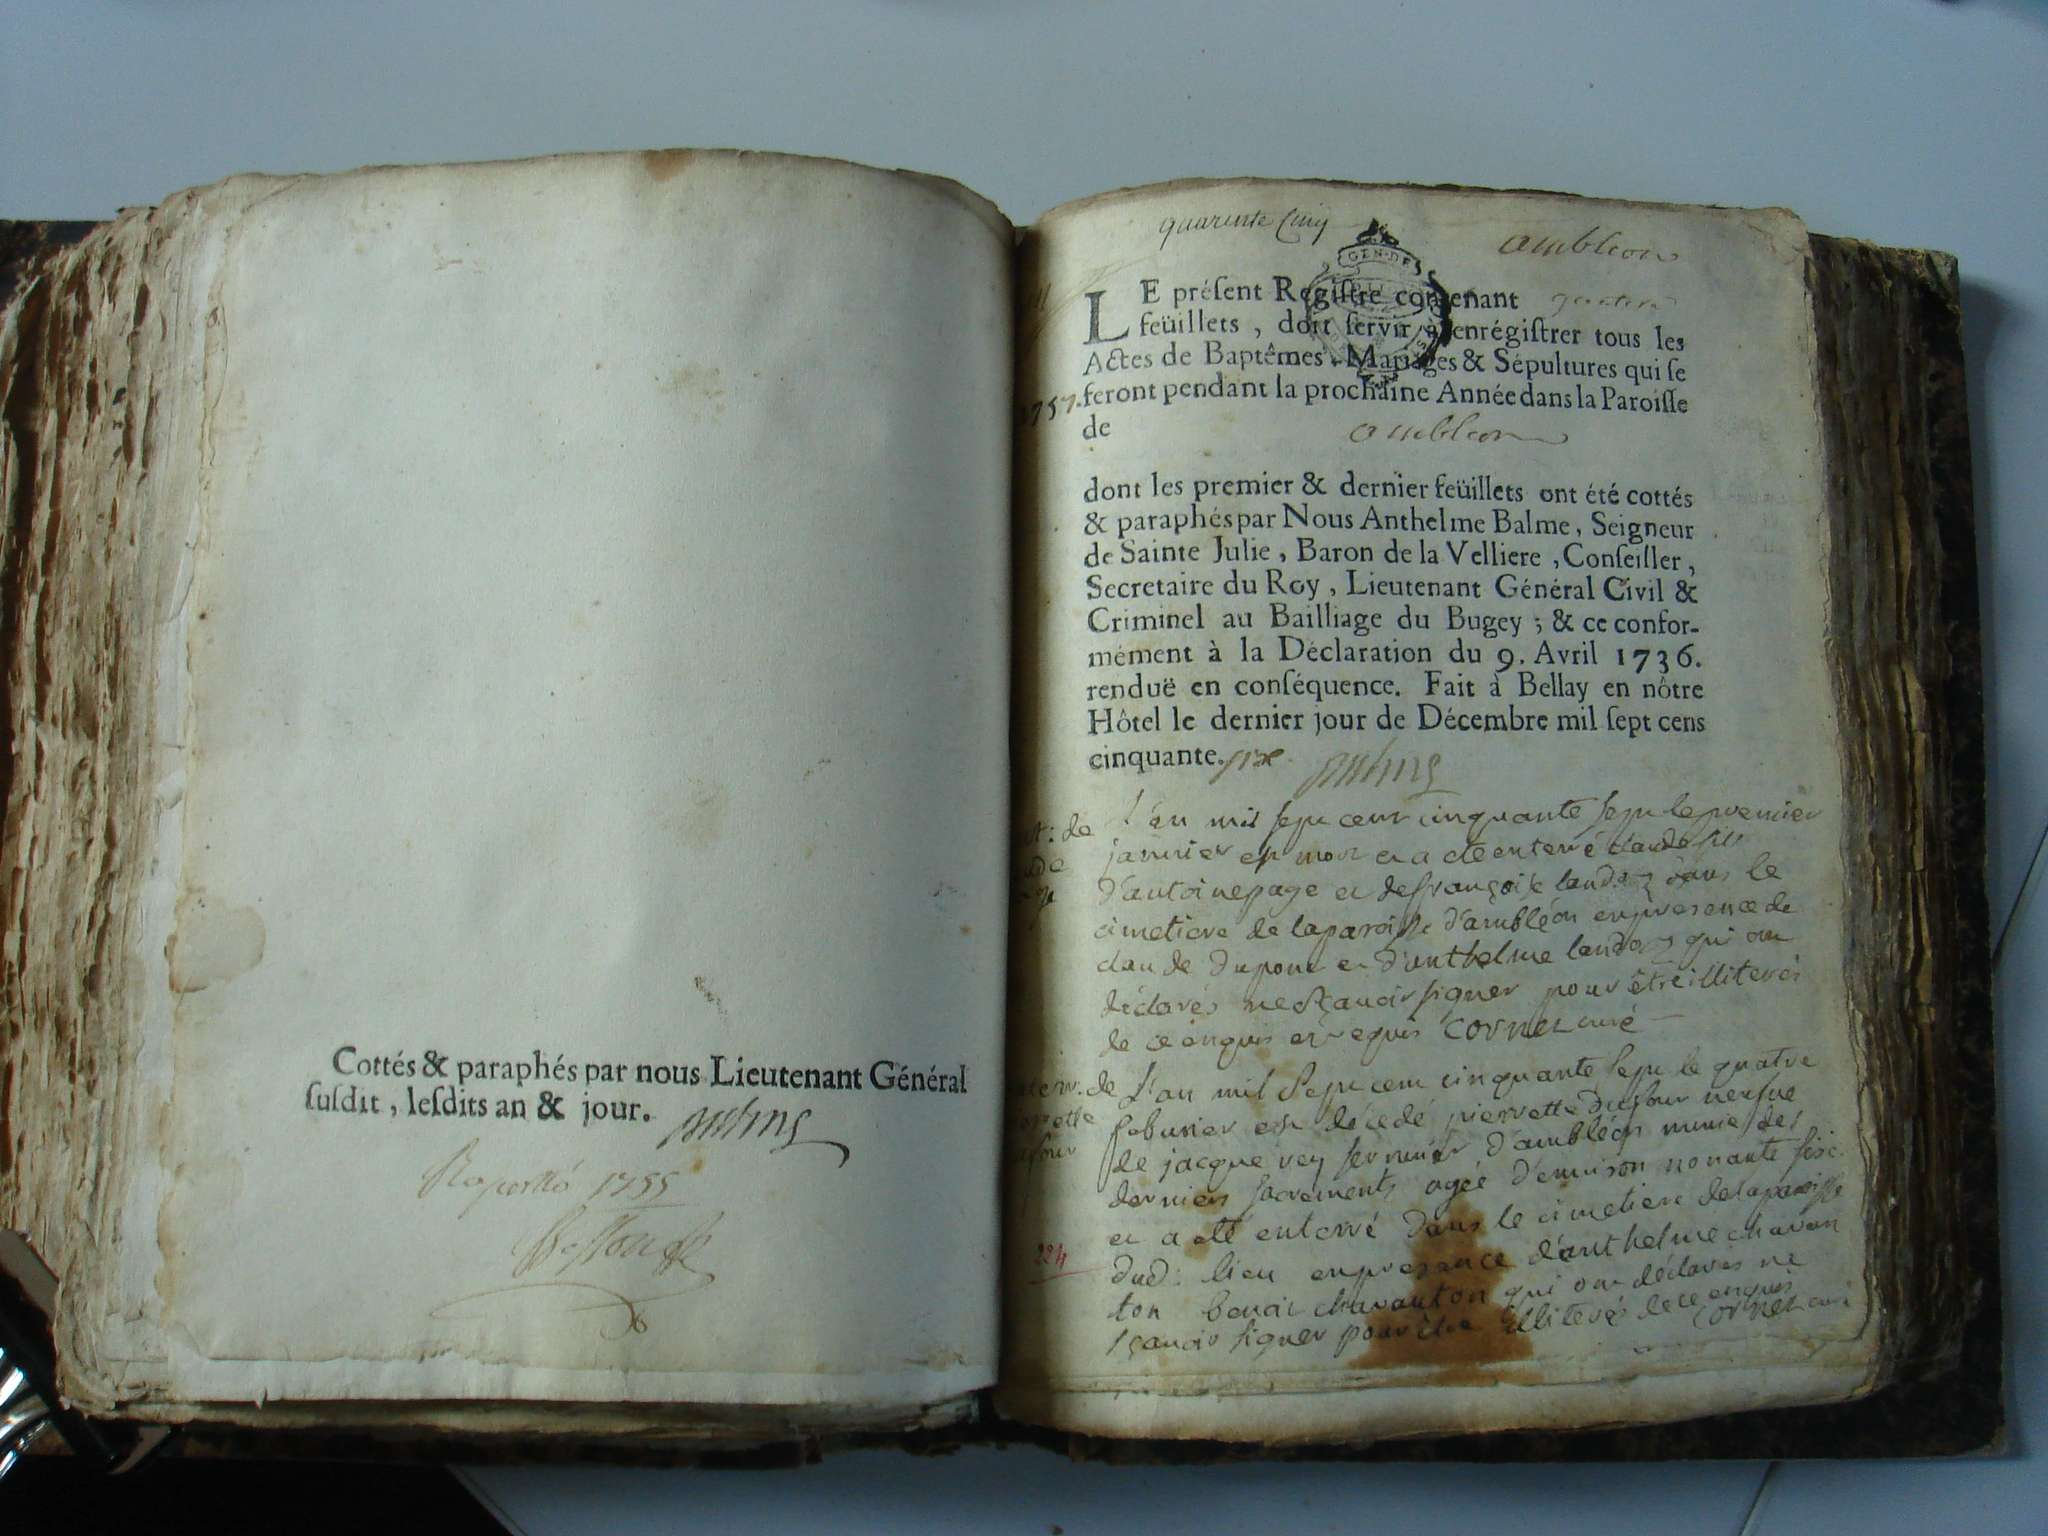 Cottés & paraphés par nous Lieutenant Général
ſuſdit, leſdits an & jour.
1755
quarente Cinq
ambleon
GEN·DE
LE préſent Regiſtre contenant
feüillets, doit ſervir à enrégiſtrer tous les
Actes de Baptêmes, Mariages & Sépultures qui ſe
feront pendant la prochaine Année dans la Paroiſſe
1757.
de ambleon
dont les premier & dernier feüillets ont été cottés
& paraphés par Nous Anthelme Balme, Seigneur
de Sainte Julie, Baron de la Velliere, Conſeiller,
Secretaire du Roy, Lieutenant Général Civil &
Criminel au Bailliage du Bugey; & ce confor-
mément à la Déclaration du 9. Avril 1736.
renduë en conſéquence. Fait à Bellay en nôtre
Hôtel le dernier jour de Décembre mil ſept cens
cinquante. six
L'an mil sept cent cinquante sept le premier
janvier est mort et a eté enterré claude fils
d'antoine page et de françoise landoz dans le
cimetiere de la paroisse d'ambléon en presence de
claude dupont et d'anthelme landoz qui ont
déclarés ne sçauoir signer pour être illiterés
de ce enquis et requis cornet curé
L'an mil sept cent cinquante sept le quatre
feburier est décedé pierrette dufour veufue
de jacque rey d'ambléon munie des
derniers sacrements agée d'enuiron nonante six
et a eté enterré dans le cimetiere de la paroisse
dud: lieu en presence d'anthelme chavan
ton benoit chavanton qui ont déclarés ne
sçauoir signer pour être illiterés de ce enquis
cornet curé
224